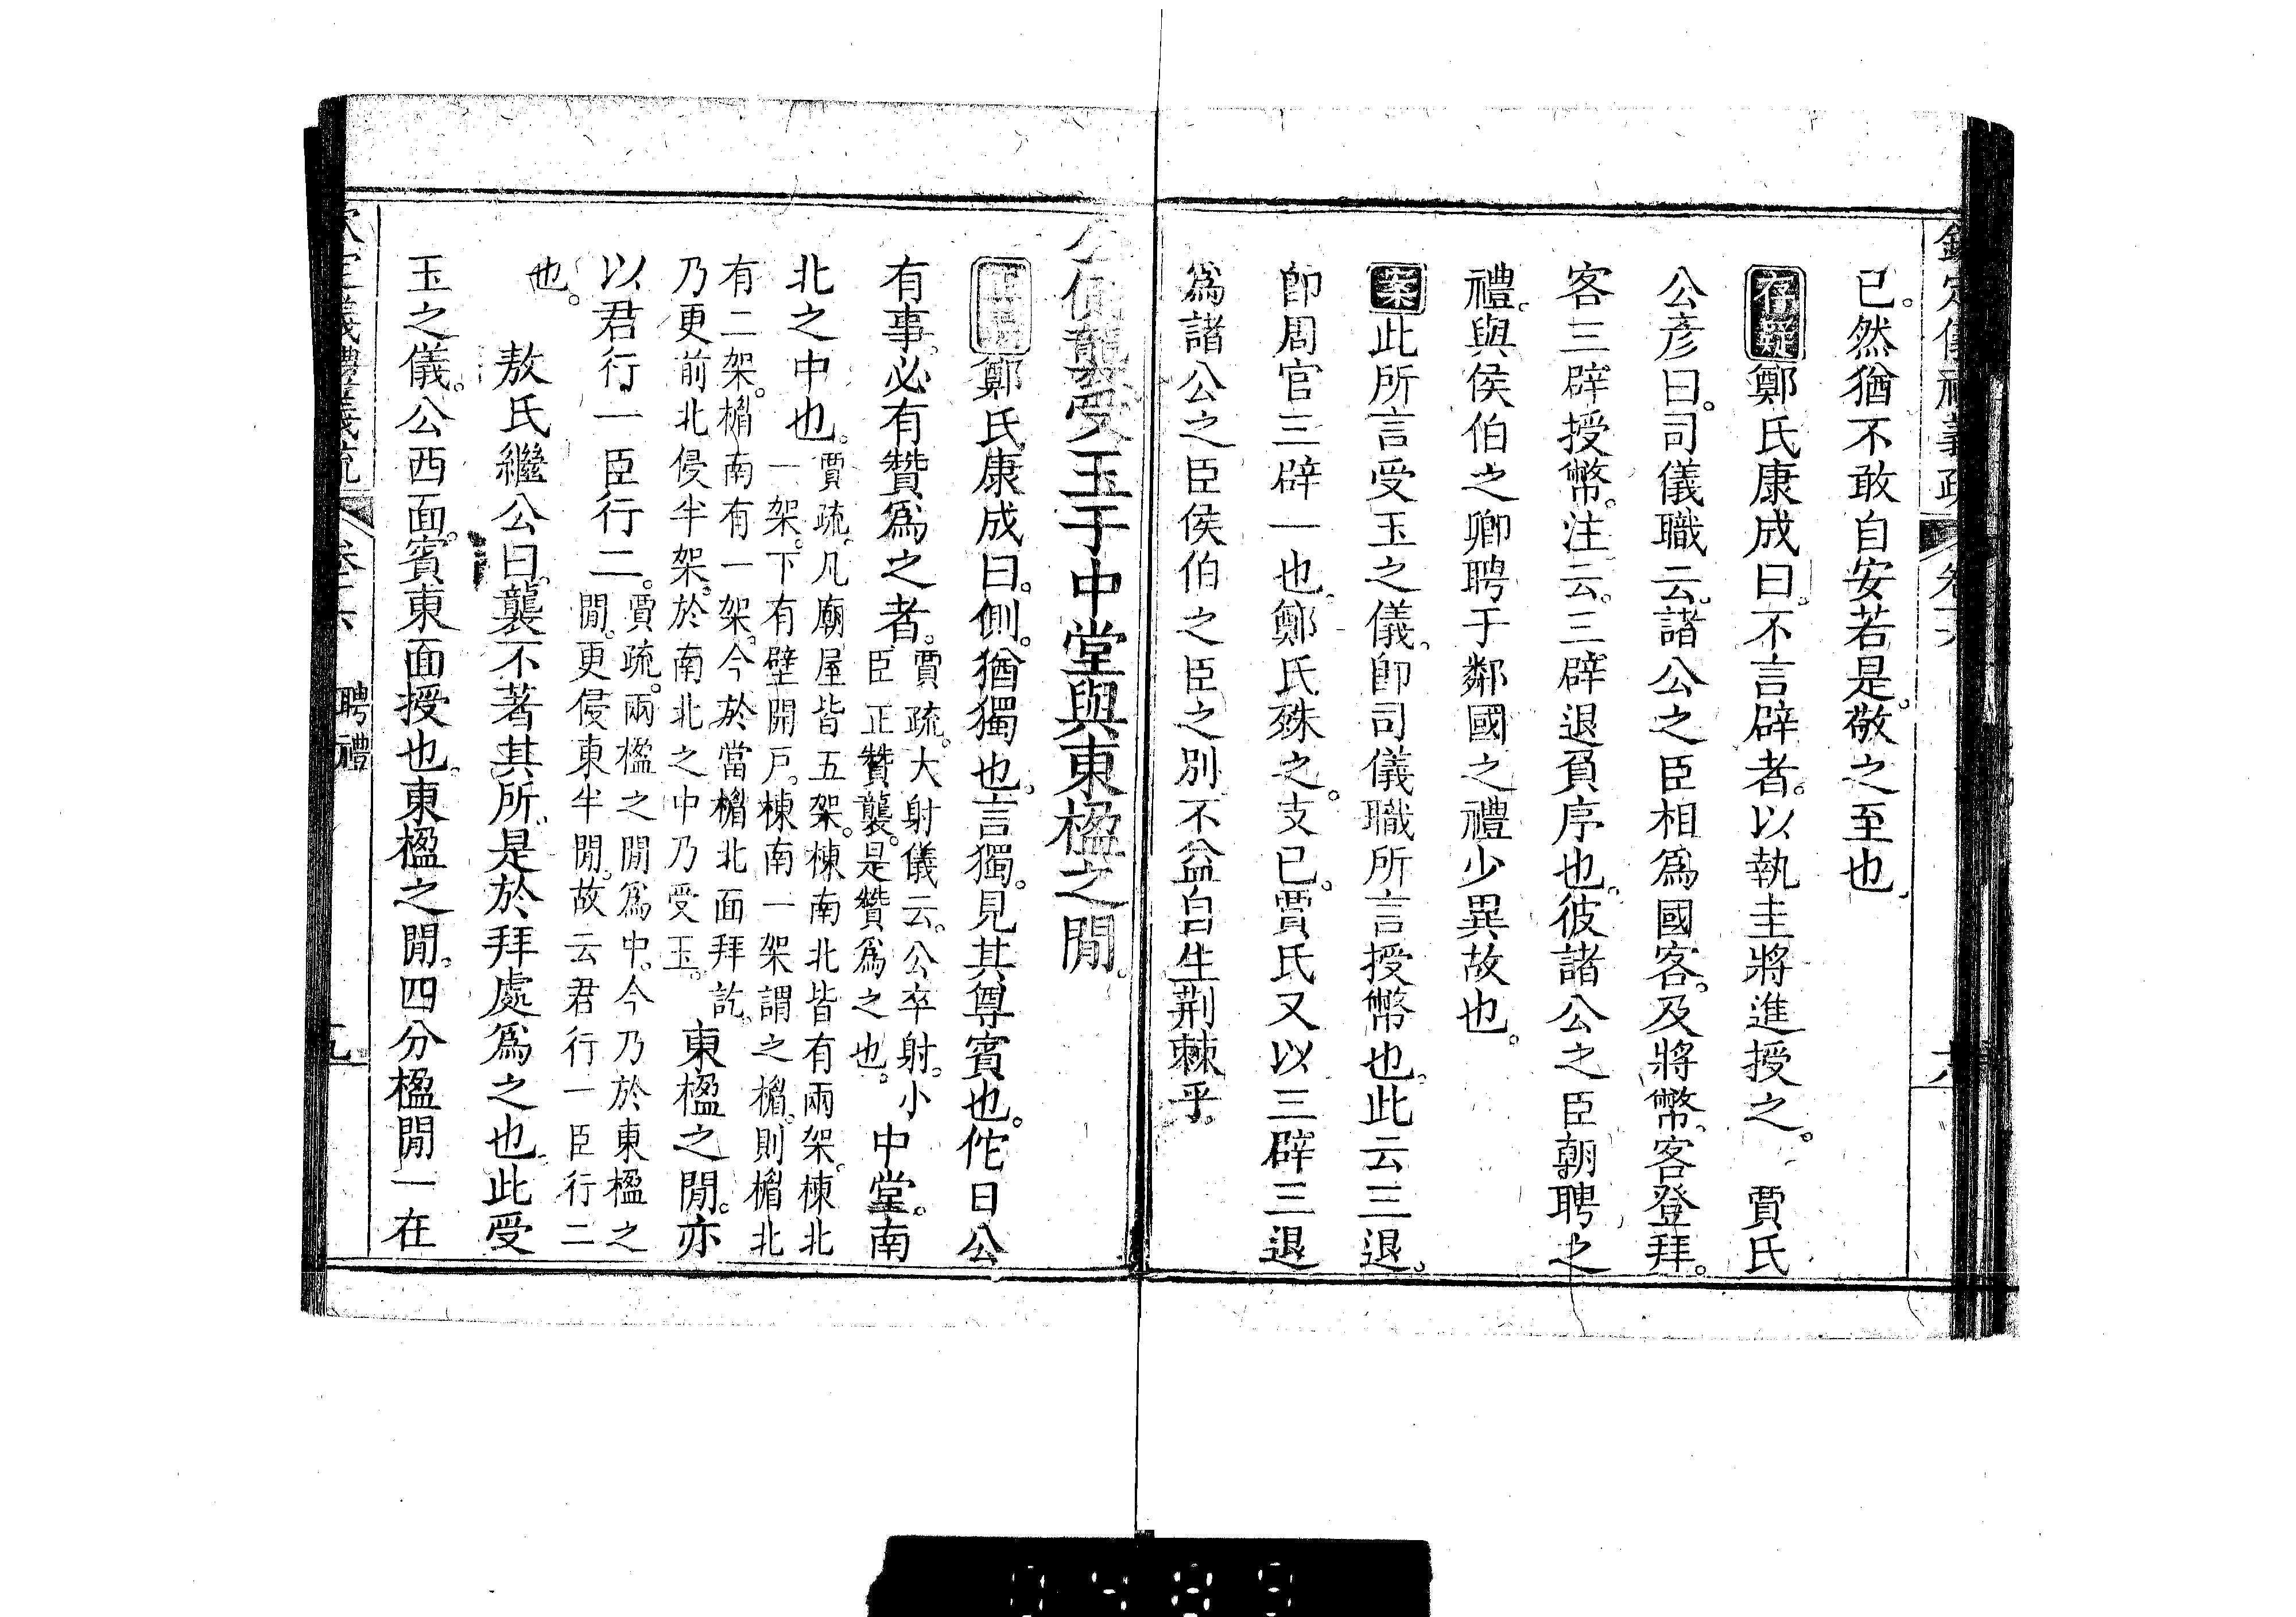 已。然猶不敢自安若是。敬之至也。
存疑鄭氏康成曰。不言辟者。以執圭將進授之。 賈氏
公彥曰。司儀職云。諸公之臣相爲國客。及將幣。客登拜。
客三辟授幣。注云。三辟。三退負序也。彼諸公之臣朝聘之
禮。與侯伯之卿聘于鄰國之禮少異故也。
案此所言受玉之儀。卽司儀職所言授幣也。此云三退。
卽周官三辟一也。鄭氏殊之。支已。賈氏又以三辟三退
爲諸公之臣侯伯之臣之別。不益自生荆棘乎。
公側襲受玉于中堂與東楹之閒。
正義鄭氏康成曰。側。猶獨也。言獨。見其尊賓也。佗日公
有事。必有贊爲之者。
賈疏。大射儀云。公卒射。小
臣正贊襲。是贊爲之也。
中堂。南
北之中也。
賈疏。凡廟屋皆五架。棟南北皆有兩架。棟北
一架。下有壁開戶。棟南一架謂之楣。則楣北
有二架。楣南有一架。今於當楣北面拜訖。
乃更前北侵半架。於南北之中乃受玉。
東楹之閒。亦
以君行一臣行二。
賈疏。兩楹之閒爲中。今乃於東楹之
閒。更侵東半閒。故云君行一臣行二
也。
敖氏繼公曰。襲不著其所。是於拜處爲之也。此受
玉之儀。公西面。賓東面授也。東楹之閒。四分楹閒一在
聘禮